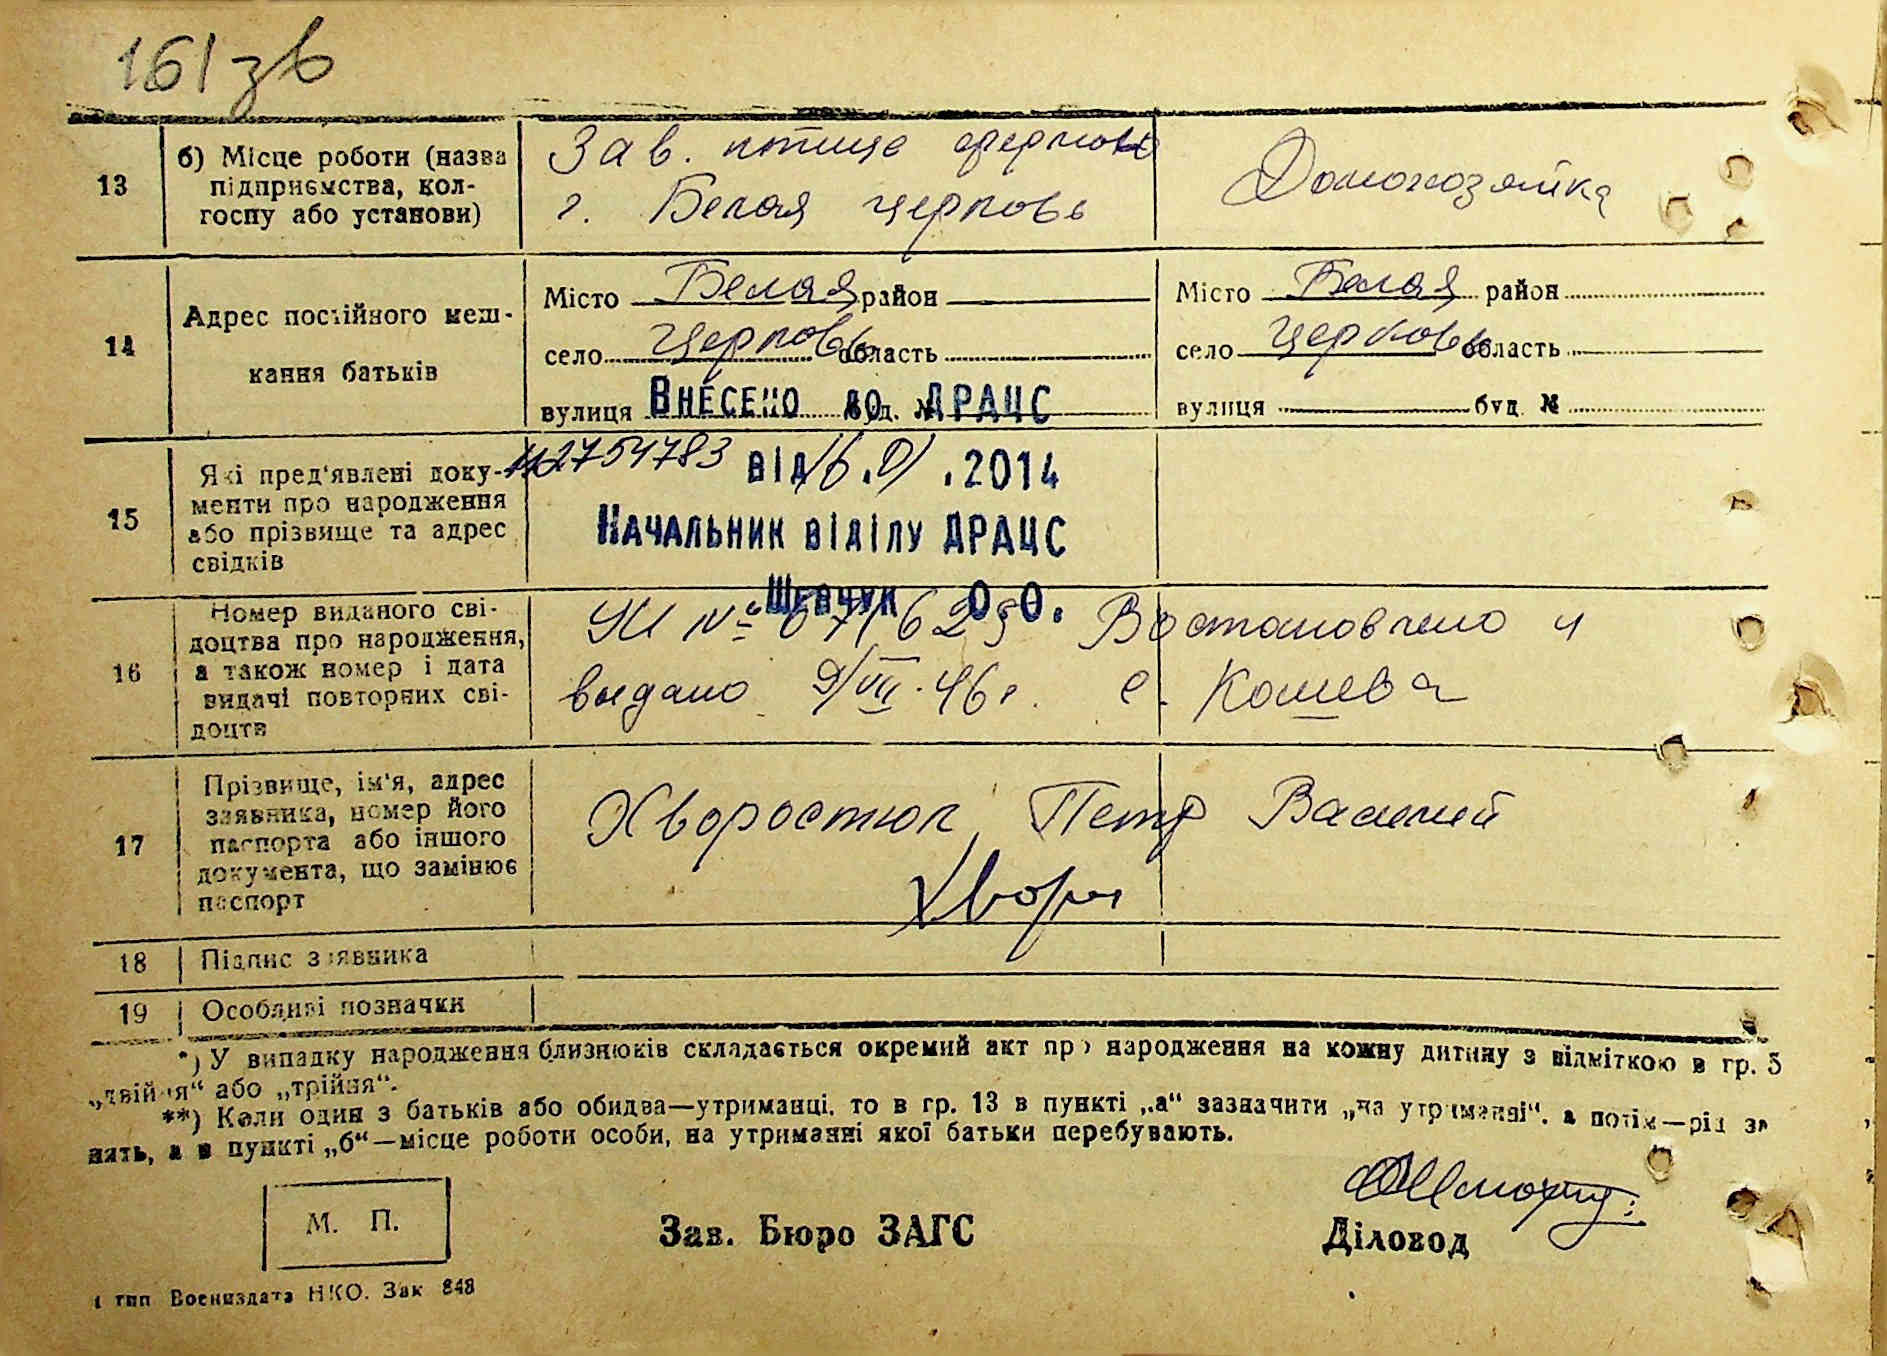 161 зв
13
б) Місце роботи (назва
підприємства, кол-
госпу або установи)
Зав. птице фермой
г. Белая церковь
Домохозяйка
14
Адрес постійного меш-
кання батьків
Місто Белая район
село Церковь область
вулиця буд. №
Місто Белая район
село Церковь область
вулиця буд. №
Внесено до ДРАЦС
№2754783 від 16.01.2014
Начальник відділу ДРАЦС
Шевчук О.О.
15
Які пред'явлені доку-
менти про народження
або прізвище та адрес
свідків
16
Номер виданого сві-
доцтва про народження,
а також номер і дата
видачі повторних сві-
доцтв
№ 071625 Востановлено и
выдано 9/VII-46г. с. Кошева
17
Прізвище, ім'я, адрес
заявника, номер його
паспорта або іншого
документа, що замінює
паспорт
Хворостюк Петр Василий
18
Підпис заявника
19
Особливі позначки
*) У випадку народження близнюків складається окремий акт про народження на кожну дитину з відміткою в гр. 5
„двійня“ або „трійня“.
**) Коли один з батьків або обидва—утриманці, то в гр. 13 в пункті „а“ зазначити „на утриманні“, а потім—рід за
нять, а в пункті „б“—місце роботи особи, на утриманні якої батьки перебувають.
М. П.
Зав. Бюро ЗАГС
Діловод
1 тип Воениздата НКО. Зак 848